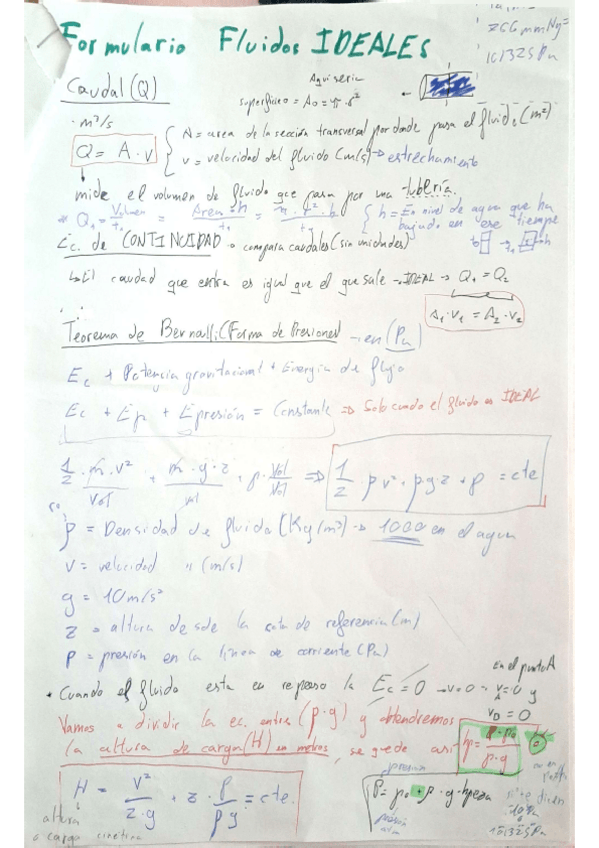 766 mmHg =
101325 Pa
Formulario Fluidos IDEALES
Caudal (Q)
Aquí sería
superficie = A₀ = π · r²
· m³/s
Q = A · v
A = area de la sección transversal por donde pasa el fluido (m²)
v = velocidad del fluido (m/s) → estrechamiento
mide el volumen de fluido que pasa por una tubería.
Q₁ = Volumen/t₀ = Area · h/t₀ = π · r² · h/t
h = En nivel de agua que ha
bajado en ese tiempo
Ec. de CONTINUIDAD → compara caudales (sin unidades)
↳ El caudal que entra es igual que el que sale → IDEAL → Q₁ = Q₂
A₁ · v₁ = A₂ · v₂
Teorema de Bernoulli (Forma de Presiones) → en (Pa)
Ec + Potencia gravitacional + Energía de flujo
Ec + Ep + Epresión = Constante ⇒ Solo cuando el fluido es IDEAL
1/2 · m · v²/Vol + m · g · z/vol + p · Vol/Vol ⇒ 1/2 ρv² + ρgz + p = cte
ρ = Densidad de fluido (Kg/m³) → 1000 en el agua
v = velocidad " (m/s)
g = 10 m/s²
z = altura desde la cota de referencia (m)
P = presión en la línea de corriente (Pa)
en el punto A
· Cuando el fluido esta en reposo la Ec = 0 → v = 0 → v_A = 0 y
v_D = 0
Vamos a dividir la ec. entre (ρ · g) y obtendremos
la altura de carga (H) en metros, se quede así
hp = p - p₀/ρ · g
presión
H = v²/2 · g + z · p/ρg = cte.
P = p₀ + ρ · g · hpeza
altura
o carga cinética
presión
atm
si te dicen
10⁵ Pa
o
101325 Pa